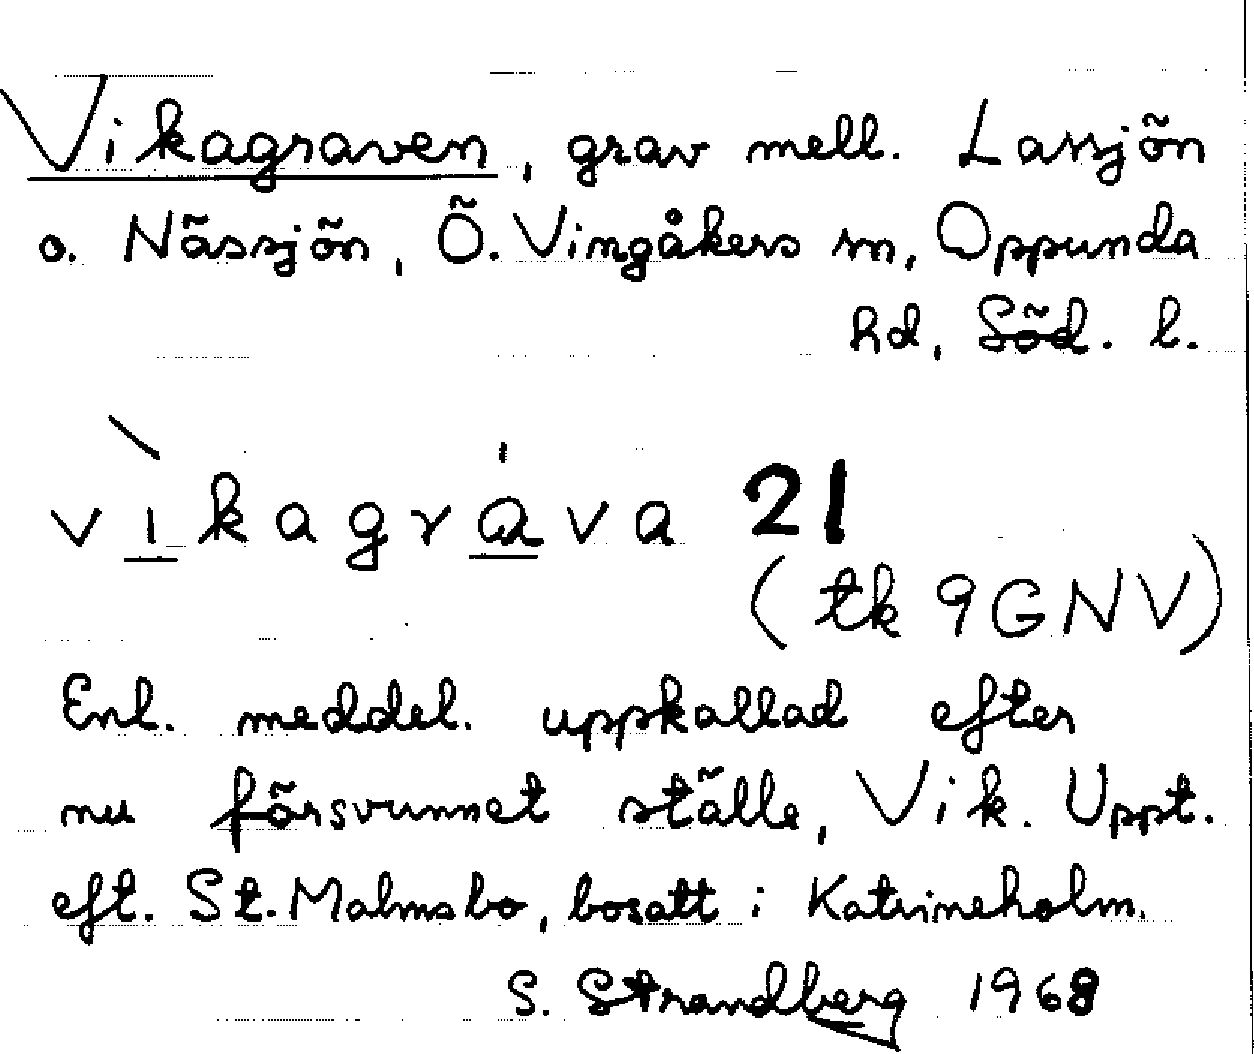 Vikagraven, grav mell. Lassjön
o. Nässjön, Ö. Vingåkers sn, Oppunda
hd, Söd. l.
vìkagráva 21
(tk 9GNV)
Enl. meddel. uppkallad efter
nu försvunnet ställe, Vik. Uppt.
eft. St. Malmsbo, bosatt i Katrineholm.
S. Strandberg 1968